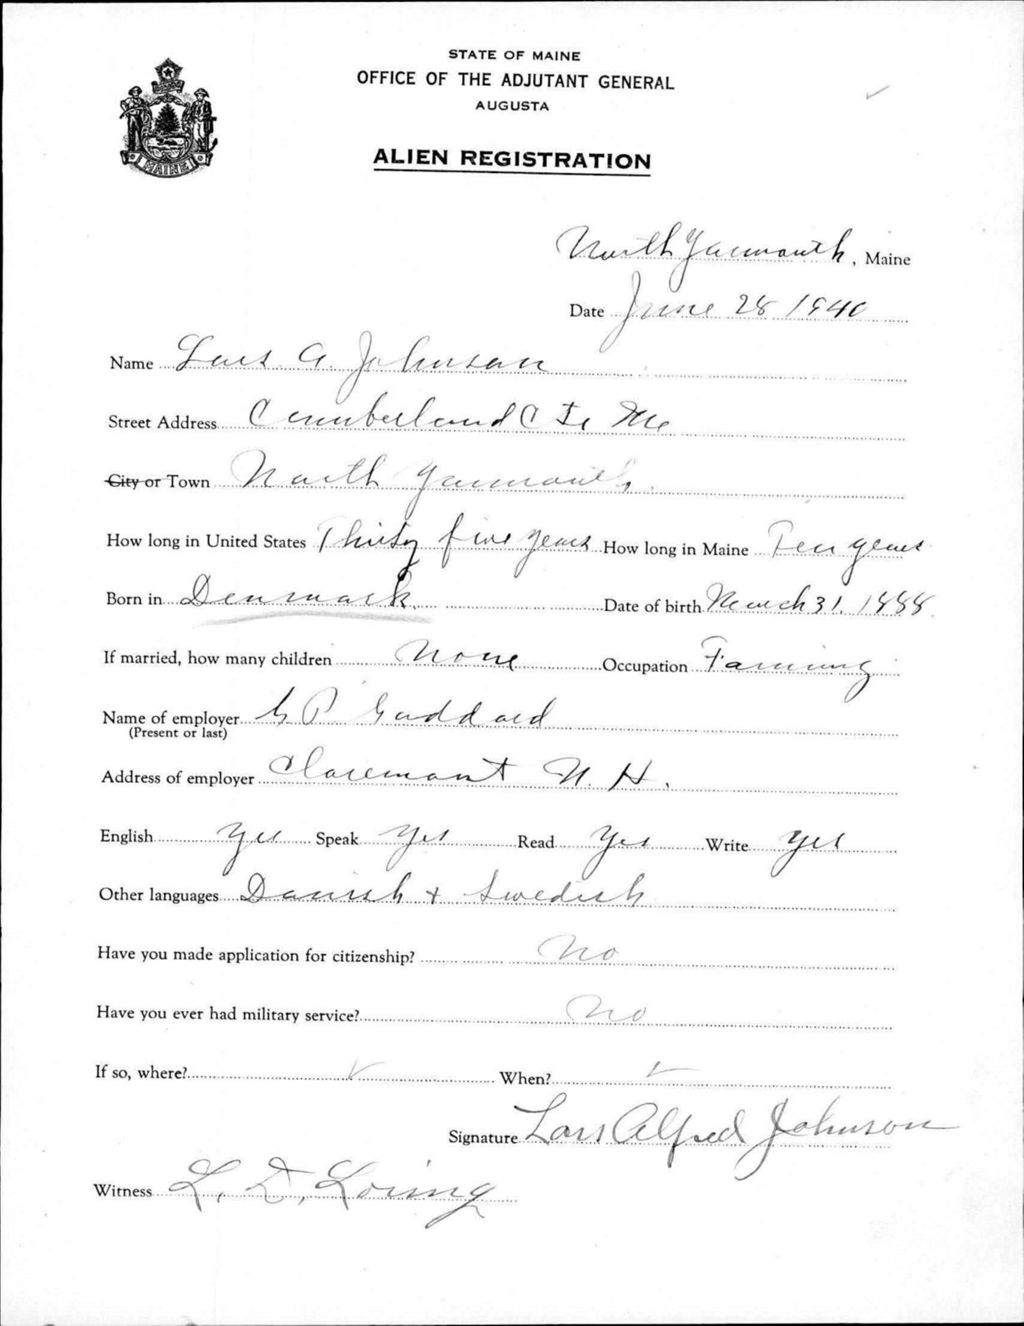 STATE OF MAINE
OFFICE OF THE ADJUTANT GENERAL
AUGUSTA
ALIEN REGISTRATION
MAINE
North Yarmouth, Maine
Date June 28 1940
Name Lars A. Johnson
Street Address Cumberland Ctr Me
City or Town North Yarmouth,
How long in United States Thirty five years How long in Maine Ten years
Born in Denmark. Date of birth March 31, 1888
If married, how many children None Occupation Farming
Name of employer G P Goddard
(Present or last)
Address of employer Claremont N. H.
English Yes Speak Yes Read Yes Write Yes
Other languages Danish + Swedish
Have you made application for citizenship? No
Have you ever had military service? No
If so, where? When?
Signature Lars Alfred Johnson
Witness L. D. Loring